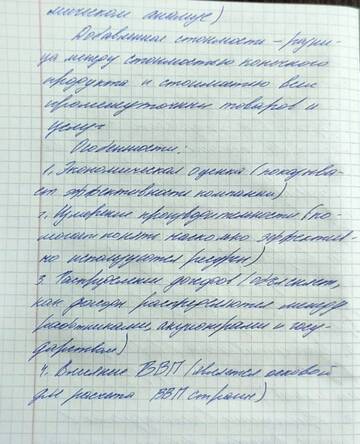 мическом анализе)
Добавленная стоимость – разни-
ца между стоимостью конечного
продукта и стоимостью всех
промежуточных товаров и
услуг
Особенности:
1. Экономическая оценка (показыва-
ет эффективность компании)
2. Измерение производительности (по-
могает понять насколько эффектив-
но используются ресурсы)
3. Распределение доходов (объясняет,
как доходы распределяются между
работниками, акционерами и госу-
дарством)
4. Влияние ВВП (является основой
для расчета ВВП страны)